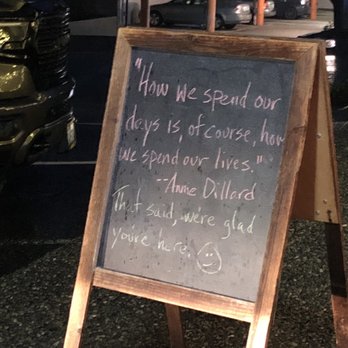 "How we spend our
days is, of course, how
we spend our lives."
--Annie Dillard
That said, we're glad
you're here.